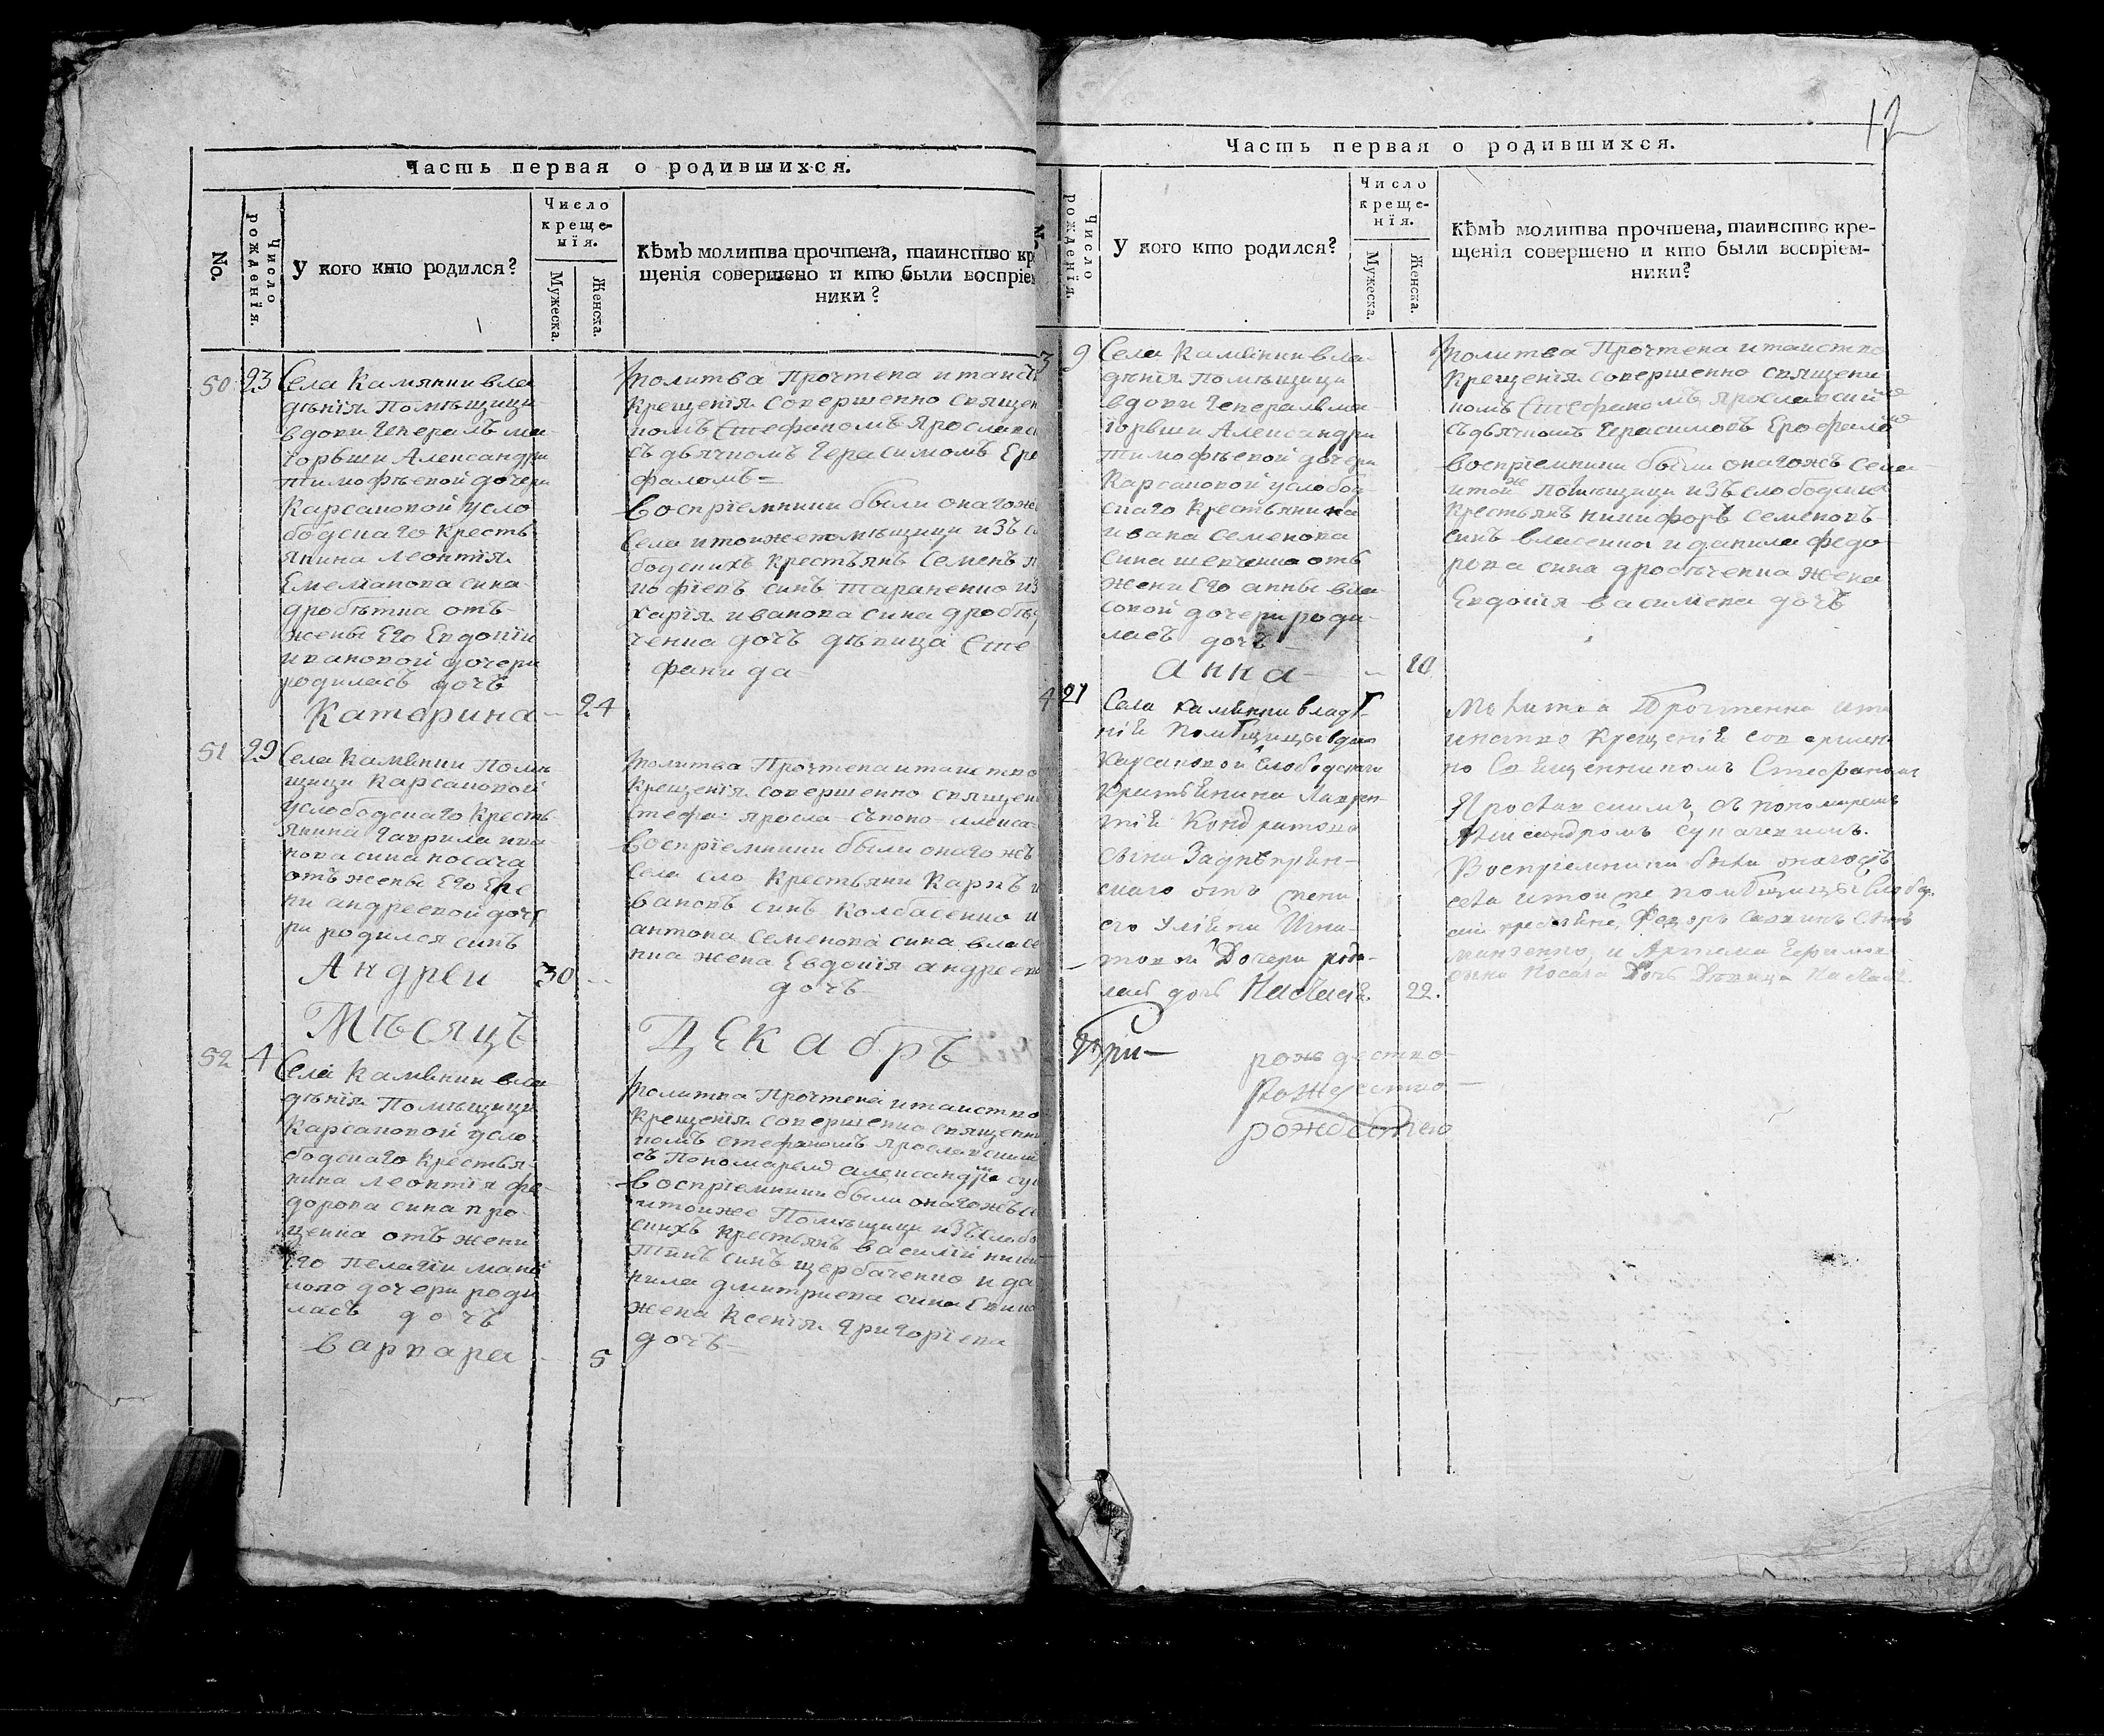 Часть первая о родившихся.
No.
Число рожденія.
У кого кто родился?
Число
креще-
нія.
Мужеска.
Женска.
Кѣмъ молитва прочтена, таинство кр
щенія совершено и кто были воспріем
ники?
50 23 Села Камянки вла
дѣнія Помѣщици
вдови Генералъ ма-
іорьши Александри
тимофѣевой дочери
Карсаковой Усло
бодскаго Кресть
янина Леонтія
Емелianова сина
отъ
жены Его Евдокіи
ивановой дочери
родилась дочъ
Катерина 24
молитва Прочтена и таинст
Крещенія совершенно священ
номъ Стефаномъ Ярославс
съ дьячкомъ Герасимомъ Еро
фаломъ
воспріемники были онагоже
Села итойжепомѣщици изъ сл
бодскихъ Крестьянъ Семенъ
синъ Тараненко и
харія иванова сина дробъ
ченка дочъ дѣвица Сте
фанида
51 29 Села Камѣнки Помѣ
щици Карсаковой
Услободскаго Кресть
янина Гаврила ива
нова сина носача
отъ жены Его
ни андреевой доче
ри родился синъ
Андреи 30
молитва Прочтена и таинство
Крещенія совершенно священ
Стефа яросла
воспріемники были онагожъ
Села сло Крестьяни Карпъ и
вановъ синъ Колбасенко и
антона Семенова сина власе
нка жена Евдокія андреева
дочъ
Мѣсяцъ Декабръ
52 4 Села Камѣнки вла
дѣнія Помѣщици
Карсаковой усло
бодскаго Крестья
нина Леонтія фе
дорова сина про
ценка отъ жени
Его Пелагіи
дочери роди
лась дочъ
варвара 5
молитва Прочтена и таинство
Крещенія совершенно священни
комъ Стефаномъ Ярославскимъ
съ Пономаремъ александр
воспріемники были онагожъ с
итойже Помѣщици изъ слобо
скихъ Крестьянъ василій ники
тинъ синъ щербаченко и да
нила дмитриева сина
жена Ксенія Григоріева
дочъ
12
Часть первая о родившихся.
Число рожденія.
У кого кто родился?
Число
креще-
нія.
Мужеска.
Женска.
Кѣмъ молитва прочтена, таинство кре-
щенія совершено и кто были воспріем-
ники?
3 9 Села Камѣнки вла-
дѣнія Помѣщици
вдови Генералъ ма-
іорьши Александри
Тимофѣевой дочери
Карсаковой Услобод-
скаго Крестьянина
ивана Семенова
сина шевченка отъ
жени Его анны вла-
совой дочери роди-
лась дочъ
Анна 10
молитва Прочтена и таинство
Крещенія совершенно священи
комъ Стефаномъ Ярославский
съ дьячкомъ Герасимовъ Ерофал
воспріемники были онагожъ села
итойже Помѣщици изъ слободскихъ
Крестьянъ никифоръ семеновъ
синъ власенко и данила федо-
рова сина дробъченка жена
Евдокія василиева дочъ
4 21 Села Камѣнки владѣ-
ній Помѣщицы вдов
Карсаковой Слободскаго
Крестьянина Лаврен-
тій Кондратова
сына Заднѣпрян-
скаго отъ жени
его Улияни Игна-
товой Дочери роди-
лась дочъ Настасія 22.
Молитва Прочтенна ита
инство Крещеній совершен-
но Священникомъ Стефаномъ
Ярославскимъ, съ пономаремъ
Воспріемники были онагожъ
села итойже помѣщицы Слобод
Феодоръ
и Артема
сина Носача Дочъ Дѣвица
При—
рождество
Рождество
рождество